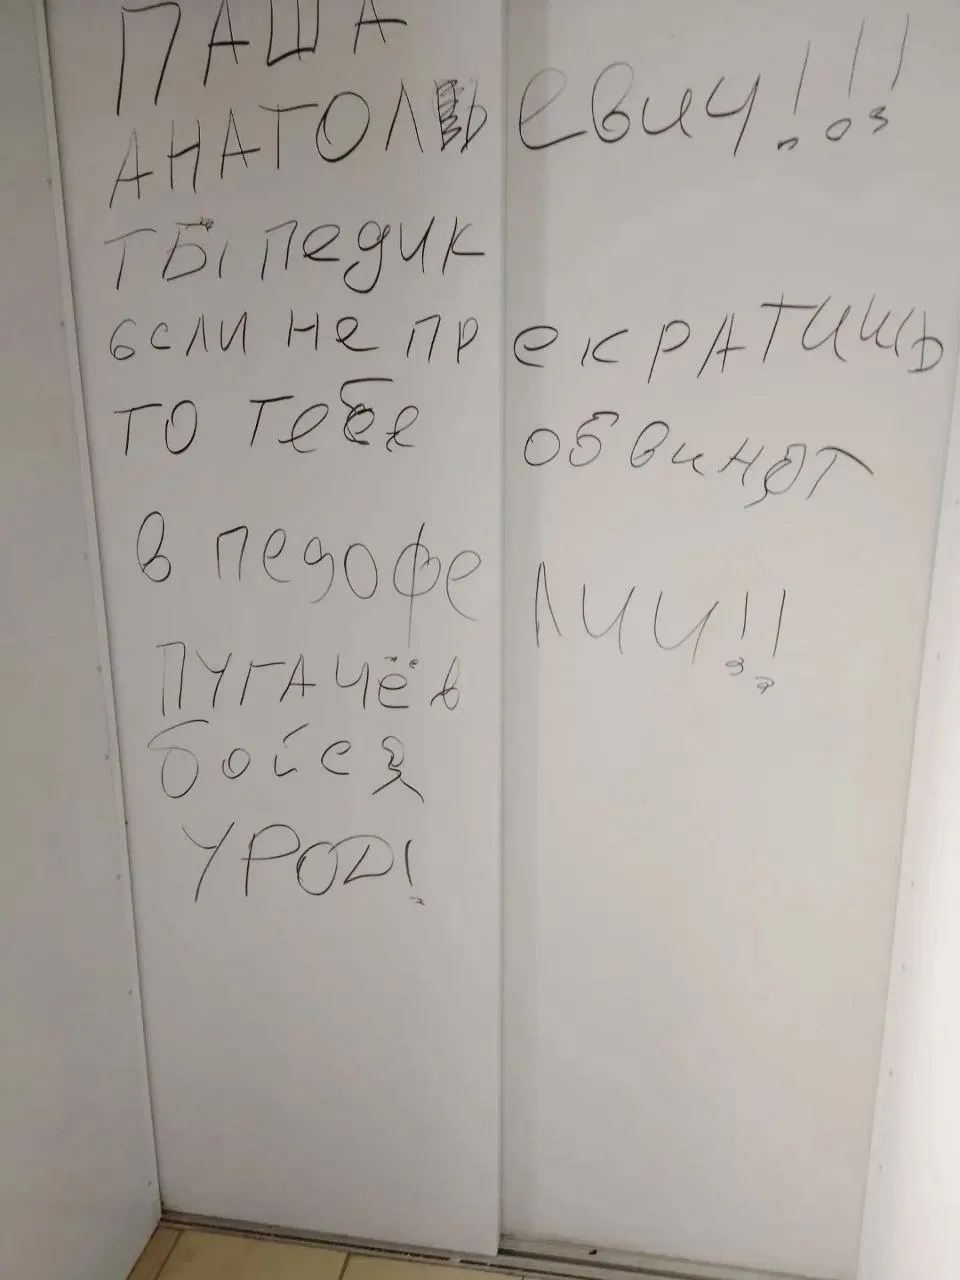 ПАША
АНАТОЛЬЕВИЧ!!!
ТЫ ПЕДИК
если не прекратишь
то тебе обвинят
в педофелии!!
ПУГАЧЁВ
бойся
УРОД!